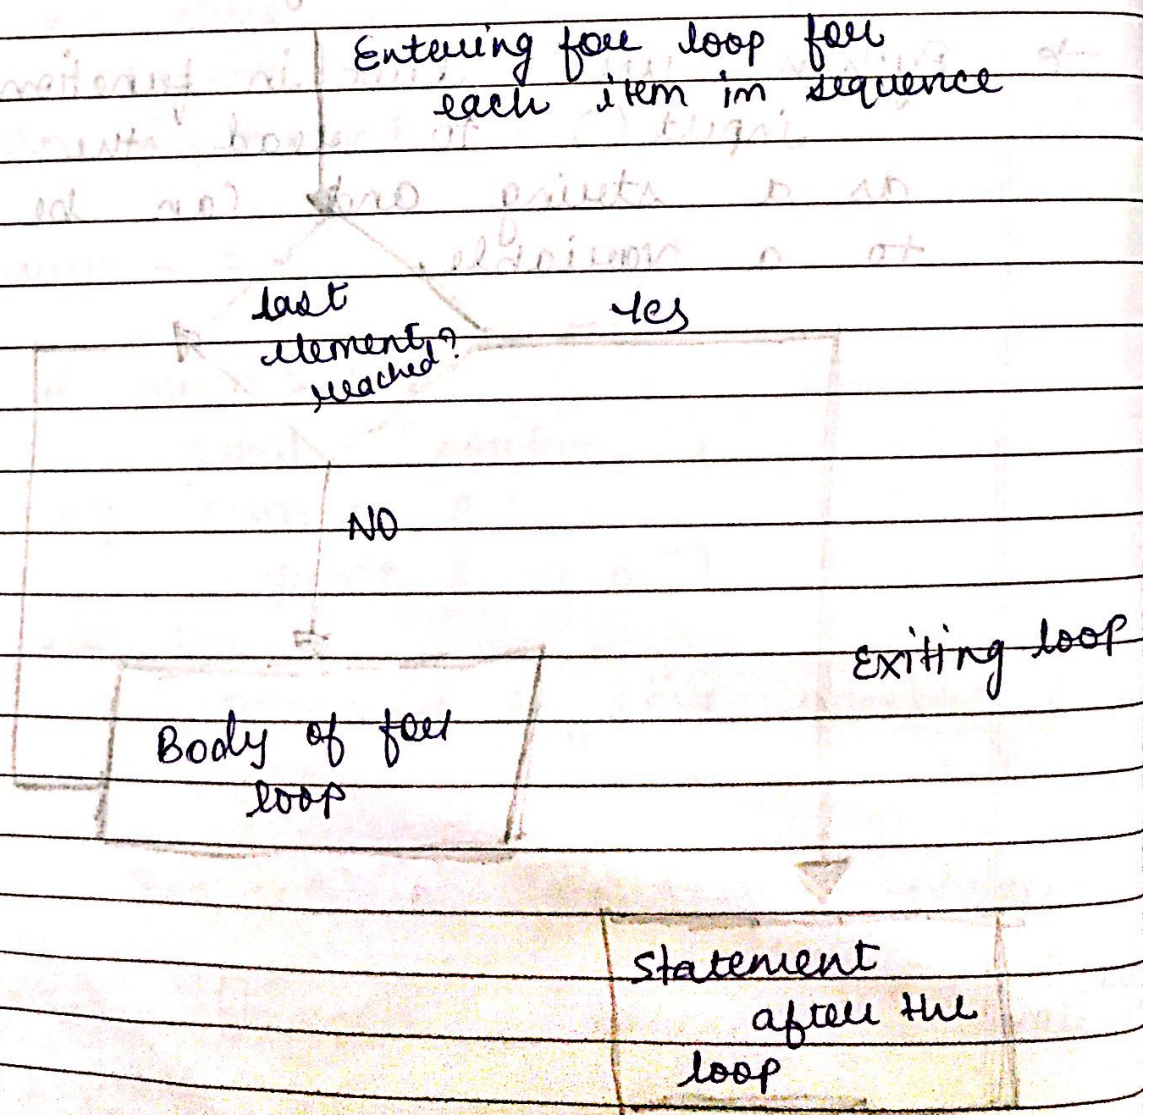 Entering for loop for
each item in sequence
last
element
reached?
Yes
NO
Exiting loop
Body of for
loop
Statement
after the
loop